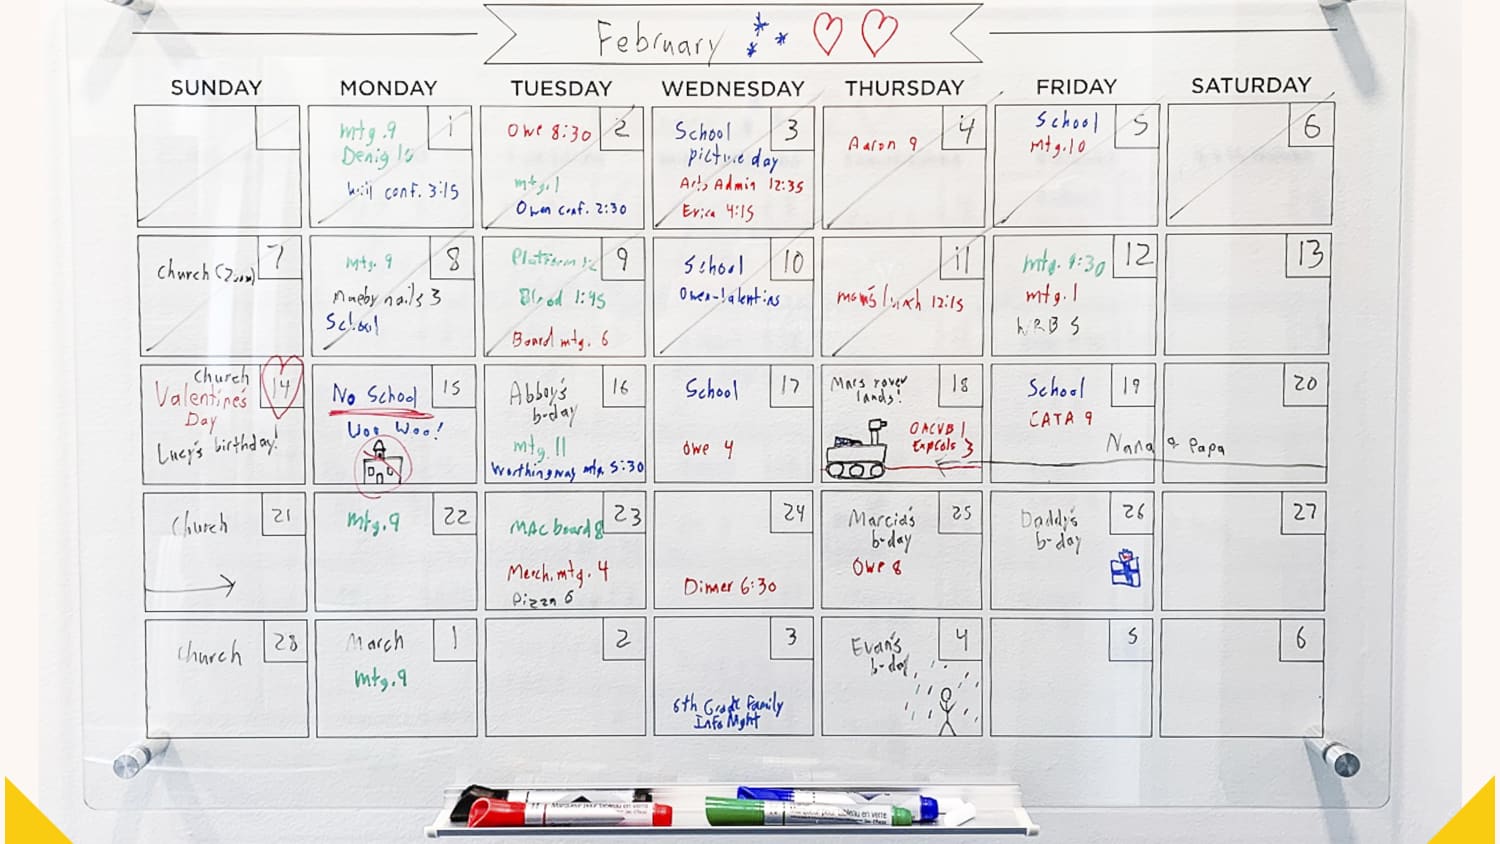 February
SUNDAY MONDAY TUESDAY WEDNESDAY THURSDAY FRIDAY SATURDAY
1
mtg. 9
conf. 3:15
2
Owe 8:30
mtg. 1
Owen conf. 2:30
3
School
picture day
Arts Admin 12:35
Erica 4:15
4
Aaron 9
5
School
Mtg. 10
6
7
Church (Zoom)
8
mtg. 9
nails 3
School
9
Platform 12
Blood 1:45
Board mtg. 6
10
School
Owen-Valentins
11
mom's lunch 12:15
12
mtg. 9:30
mtg. 1
13
14
Church
Valentine's
Day
Lucy's birthday!
15
No School
Woo Woo!
16
Abby's
b-day
mtg. 11
Worthingway mtg. 5:30
17
School
Owe 4
18
Mars rover
lands!
OACVB 1
3
19
School
CATA 9
Nana & Papa
20
21
Church
22
mtg. 9
23
MAC board 8
Merch. mtg. 4
Pizza 6
24
Dinner 6:30
25
Marcia's
b-day
Owe 8
26
Daddy's
b-day
27
28
Church
1
March
mtg. 9
2
3
6th Grade Family
Info Night
4
Evan's
b-day
5
6